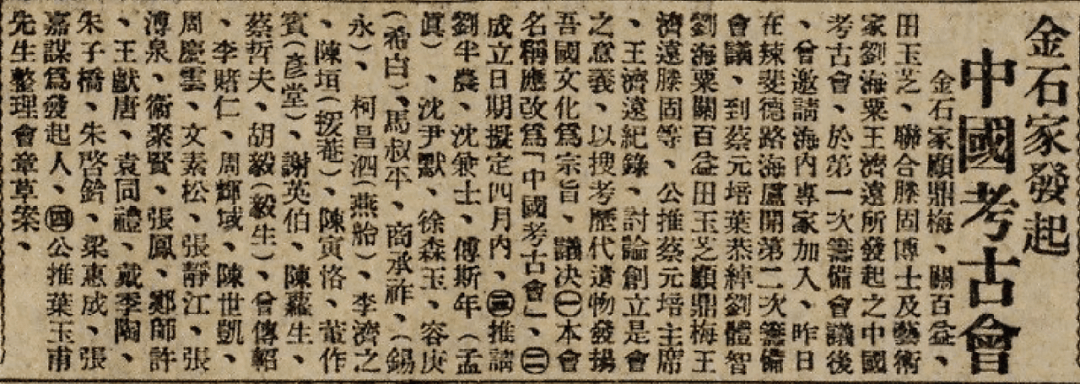 金石家發起
中國考古會
金石家顧鼎梅、關百益、
田玉芝、聯合滕固博士及藝術
家劉海粟王濟遠所發起之中國
考古會、於第一次籌備會議後
、曾邀請海內專家加入、昨日
在辣斐德路海廬開第二次籌備
會議、到蔡元培葉恭綽劉體智
劉海粟關百益田玉芝顧鼎梅王
濟遠滕固等、公推蔡元培主席
、王濟遠紀錄、討論創立是會
之意義、以搜考歷代遺物發揚
吾國文化為宗旨、議決㊀本會
名稱應改為「中國考古會」、㊁
成立日期擬定四月內、㊂推請
劉半農、沈兼士、傅斯年(孟
眞)、沈尹默、徐森玉、容庚
(希白)、馬叔平、商承祚、(錫
永)、柯昌泗(燕舲)、李濟之
、陳垣(援菴)、陳寅恪、董作
賓(彥堂)、謝英伯、陳蘿生、
蔡哲夫、胡毅(毅生)、曾傳軺
、李賭仁、周輝域、陳世凱、
周慶雲、文素松、張靜江、張
溥泉、衞聚賢、張鳳、鄭師許
、王獻唐、袁同禮、戴季陶、
朱子橋、朱啓鈐、梁惠成、張
嘉謀爲發起人、㊃公推葉玉甫
先生整理會章草案、